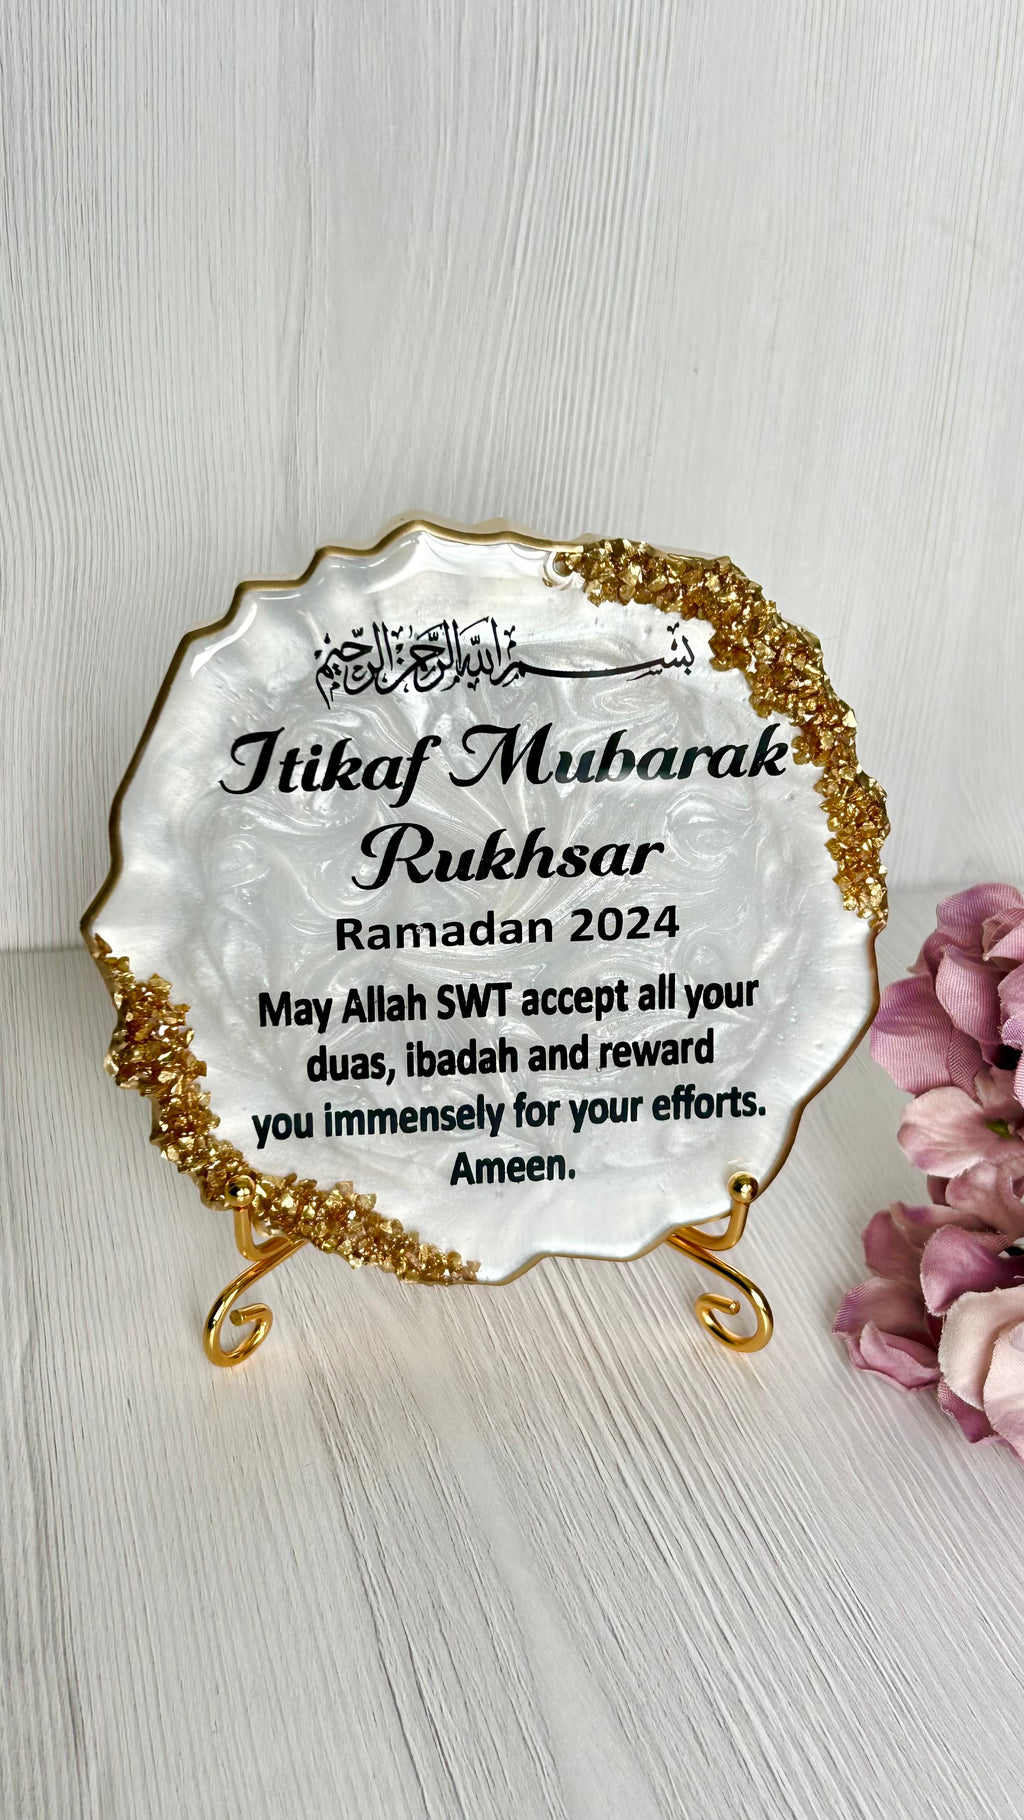 بسم الله الرحمن الرحيم
Itikaf Mubarak
Rukhsar
Ramadan 2024
May Allah SWT accept all your
duas, ibadah and reward
you immensely for your efforts.
Ameen.